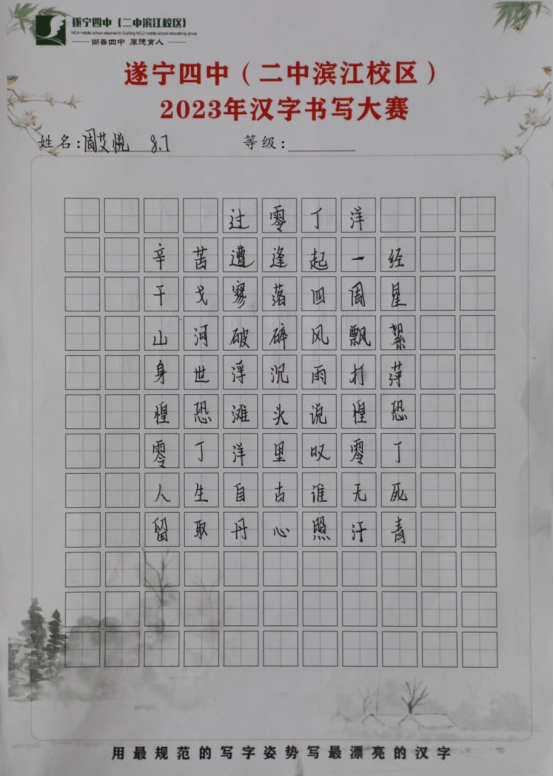 遂宁四中（二中滨江校区）
尚善四中 厚德育人
遂宁四中（二中滨江校区）
2023年汉字书写大赛
姓名：周艾悦 8.7 等级：
过零丁洋
辛苦遭逢起一经
干戈寥落四周星
山河破碎风飘絮
身世浮沉雨打萍
惶恐滩头说惶恐
零丁洋里叹零丁
人生自古谁无死
留取丹心照汗青
用最规范的写字姿势写最漂亮的汉字